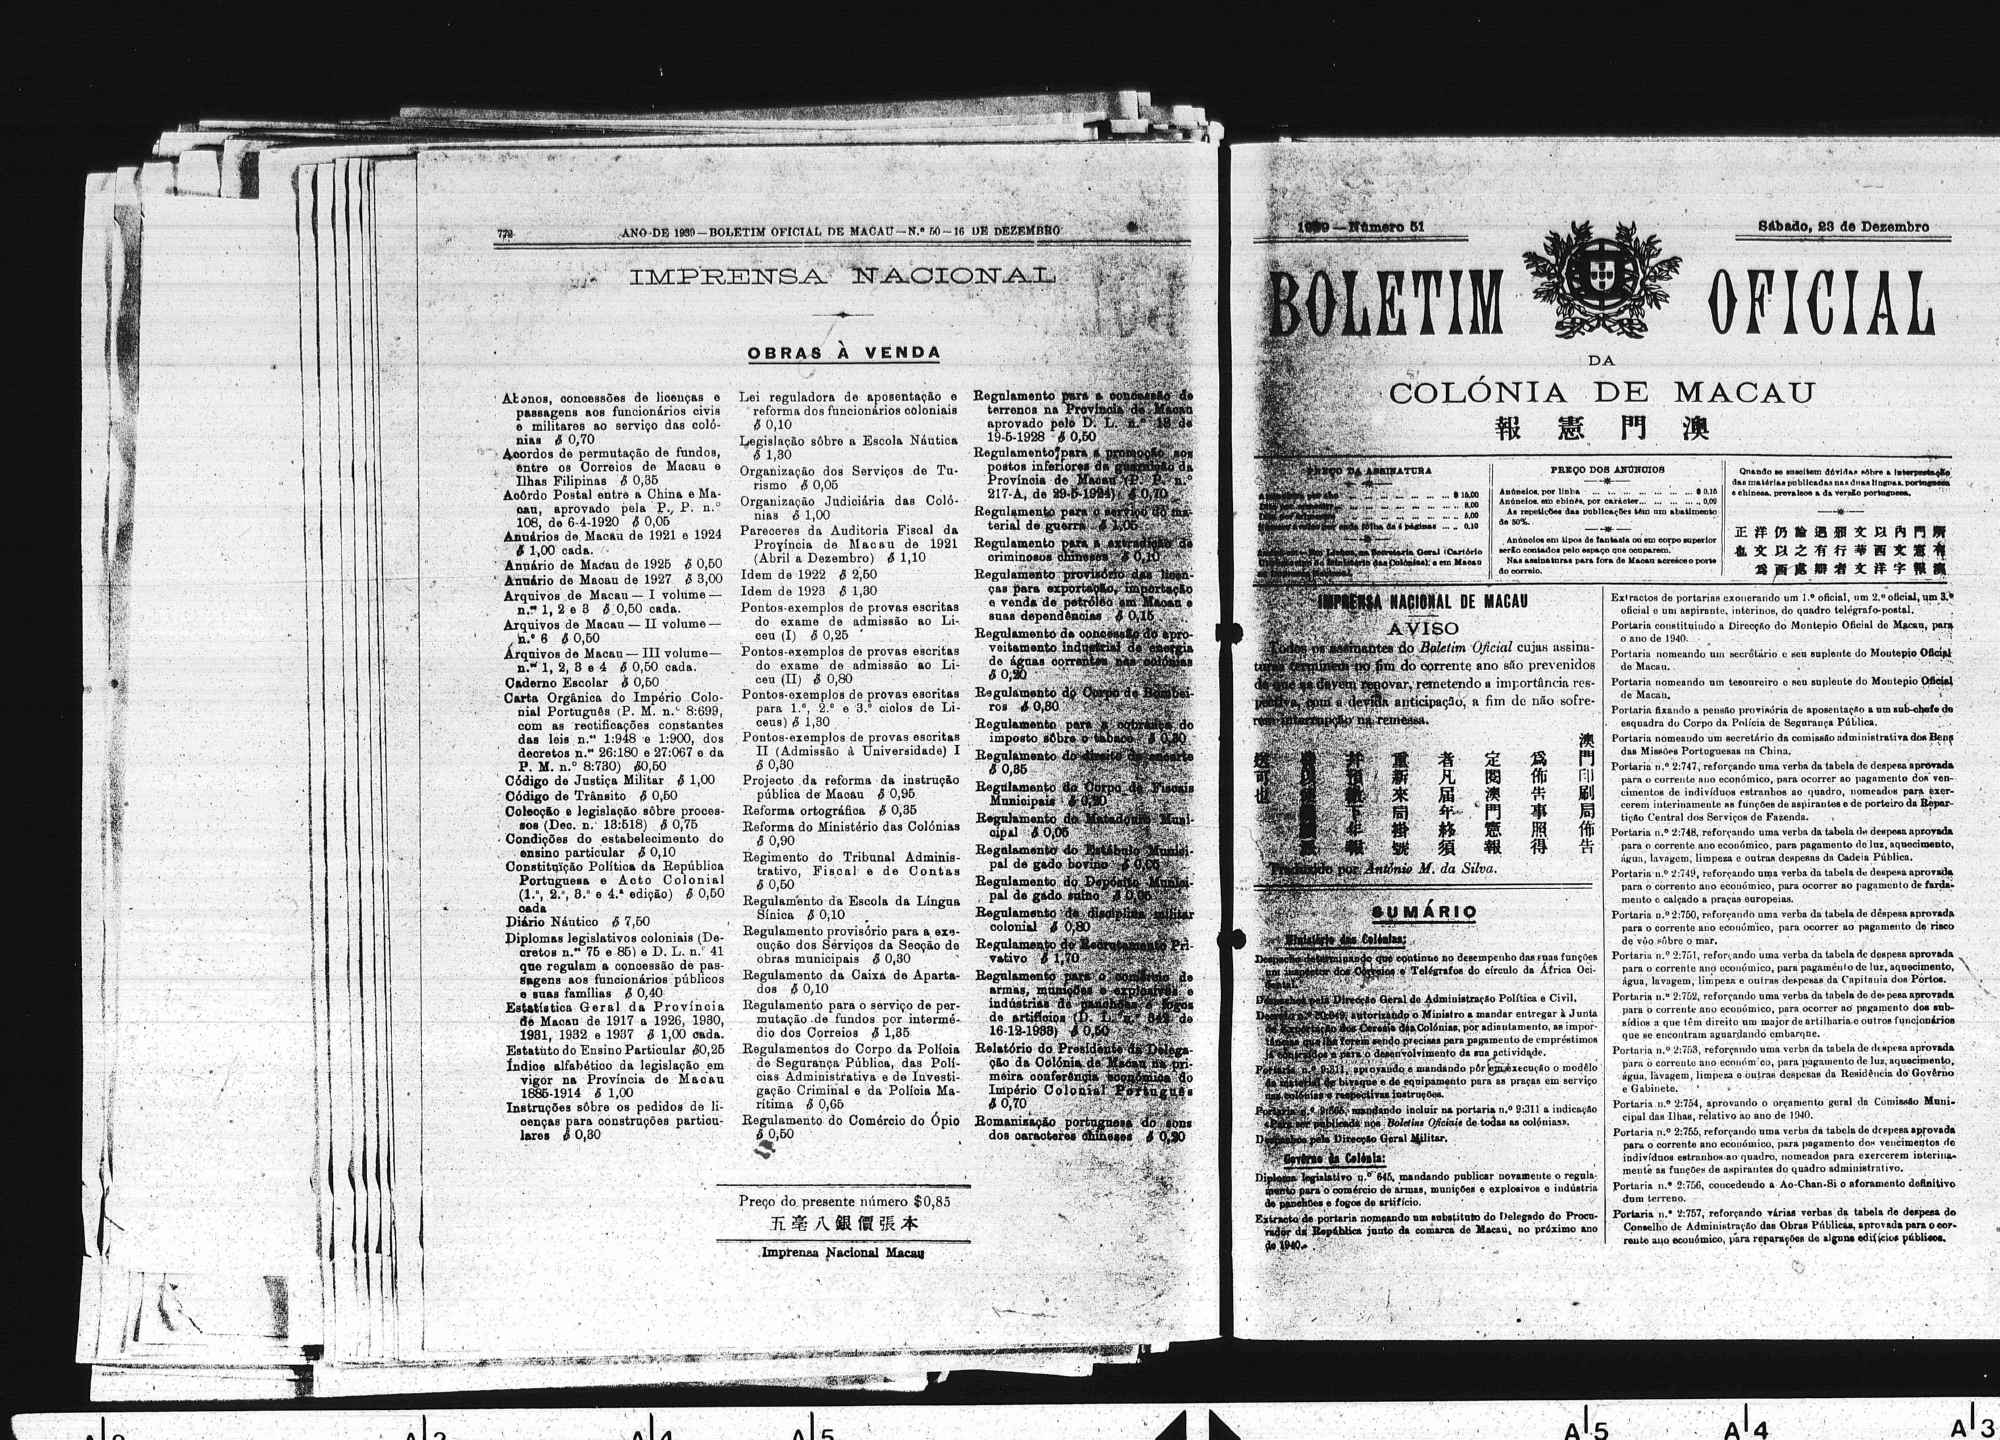 772 ANO DE 1939—BOLETIM OFICIAL DE MACAU—N.º 50—16 DE DEZEMBRO
IMPRENSA NACIONAL
OBRAS À VENDA
Abonos, concessões de licenças e
passagens aos funcionários civis
e militares ao serviço das coló-
nias $ 0,70
Acordos de permutação de fundos,
entre os Correios de Macau e
Ilhas Filipinas $ 0,35
Acôrdo Postal entre a China e Ma-
cau, aprovado pela P. P. n.º
108, de 6-4-1920 $ 0,05
Anuários de Macau de 1921 e 1924
$ 1,00 cada.
Anuário de Macau de 1925 $ 0,50
Anuário de Macau de 1927 $ 3,00
Arquivos de Macau — I volume —
n.os 1, 2 e 3 $ 0,50 cada.
Arquivos de Macau — II volume —
n.º 6 $ 0,50
Arquivos de Macau — III volume —
n.os 1, 2, 3 e 4 $ 0,50 cada.
Caderno Escolar $ 0,50
Carta Orgânica do Império Colo-
nial Português (P. M. n.º 8:699,
com as rectificações constantes
das leis n.os 1:948 e 1:900, dos
decretos n.os 26:180 e 27:067 e da
P. M. n.º 8:730) $0,50
Código de Justiça Militar $ 1,00
Código de Trânsito $ 0,50
Colecção e legislação sôbre proces-
sos (Dec. n.º 13:518) $ 0,75
Condições do estabelecimento do
ensino particular $ 0,10
Constituïção Política da República
Portuguesa e Acto Colonial
(1.ª, 2.ª, 3.ª e 4.ª edição) $ 0,50
cada
Diário Náutico $ 7,50
Diplomas legislativos coloniais (De-
cretos n.os 75 e 85) e D. L. n.º 41
que regulam a concessão de pas-
sagens aos funcionários públicos
e suas famílias $ 0,40
Estatística Geral da Província
de Macau de 1917 a 1926, 1930,
1931, 1932 e 1937 $ 1,00 cada.
Estatuto do Ensino Particular $0,25
Índice alfabético da legislação em
vigor na Província de Macau
1885-1914 $ 1,00
Instruções sôbre os pedidos de li-
cenças para construções particu-
lares $ 0,30
Lei reguladora de aposentação e
reforma dos funcionários coloniais
$ 0,10
Legislação sôbre a Escola Náutica
$ 1,30
Organização dos Serviços de Tu-
rismo $ 0,05
Organização Judiciária das Coló-
nias $ 1,00
Pareceres da Auditoria Fiscal da
Província de Macau de 1921
(Abril a Dezembro) $ 1,10
Idem de 1922 $ 2,50
Idem de 1923 $ 1,30
Pontos-exemplos de provas escritas
do exame de admissão ao Li-
ceu (I) $ 0,25
Pontos-exemplos de provas escritas
do exame de admissão ao Li-
ceu (II) $ 0,80
Pontos-exemplos de provas escritas
para 1.º, 2.º e 3.º ciclos de Li-
ceus) $ 1,30
Pontos-exemplos de provas escritas
II (Admissão à Universidade) I
$ 0,30
Projecto da reforma da instrução
pública de Macau $ 0,95
Reforma ortográfica $ 0,35
Reforma do Ministério das Colónias
$ 0,90
Regimento do Tribunal Adminis-
trativo, Fiscal e de Contas
$ 0,50
Regulamento da Escola da Língua
Sínica $ 0,10
Regulamento provisório para a exe-
cução dos Serviços da Secção de
obras municipais $ 0,30
Regulamento da Caixa de Aparta-
dos $ 0,10
Regulamento para o serviço de per-
mutação de fundos por intermé-
dio dos Correios $ 1,35
Regulamentos do Corpo da Polícia
de Segurança Pública, das Polí-
cias Administrativa e de Investi-
gação Criminal e da Polícia Ma-
rítima $ 0,65
Regulamento do Comércio do Ópio
$ 0,50
Regulamento para a concessão de
terrenos na Província de Macau
aprovado pelo D. L. n.º 18 de
19-5-1928 $ 0,50
Regulamento para a promoção aos
postos inferiores da guarnição da
Província de Macau (P. P. n.º
217-A, de 29-5-1924) $ 0,70
Regulamento para o serviço do ma-
terial de guerra $ 1,05
Regulamento para a extradição de
criminosos chineses $ 0,10
Regulamento provisório das licen-
ças para exportação, importação
e venda de petróleo em Macau e
suas dependências $ 0,15
Regulamento da concessão do apro-
veitamento industrial de energia
de águas correntes nas colónias
$ 0,20
Regulamento do Corpo de Bombei-
ros $ 0,80
Regulamento para a cobrança do
imposto sôbre o tabaco $ 0,30
Regulamento do direito de encarte
$ 0,35
Regulamento do Corpo de Fiscais
Municipais $ 0,20
Regulamento do Matadouro Muni-
cipal $ 0,05
Regulamento do Estábulo Munici-
pal de gado bovino $ 0,05
Regulamento do Depósito Munici-
pal de gado suíno $ 0,05
Regulamento de disciplina militar
colonial $ 0,80
Regulamento do Recrutamento Pri-
vativo $ 1,70
Regulamento para o comércio de
armas, munições e explosivos e
indústrias de panchões e fogos
de artifícios (D. L. n.º 342 de
16-12-1933) $ 0,50
Relatório do Presidente da Delega-
ção da Colónia de Macau na pri-
meira conferência económica do
Império Colonial Português
$ 0,70
Romanização portuguesa do sons
dos caracteres chineses $ 0,20
Preço do presente número $0,85
五毫八銀價張本
Imprensa Nacional Macau
1939—Número 51
Sábado, 23 de Dezembro
BOLETIM OFICIAL
DA
COLÓNIA DE MACAU
報憲門澳
PREÇO DA ASSINATURA
$ 15,00
8,00
5,00
0,10
PREÇO DOS ANÚNCIOS
Anúncios, por linha $ 0,15
Anúncios, em chinês, por carácter 0,09
As repetições das publicações têm um abatimento
de 50%.
Anúncios em tipos de fantasia ou em corpo superior
serão contados pelo espaço que ocuparem.
Nas assinaturas para fora de Macau acresce o porte
do correio.
Quando se suscitem dúvidas sôbre a interpretação
das matérias publicadas nas duas línguas, portuguesa
e chinesa, prevalece a da versão portuguesa.
正洋仍論遇邪文以內門所
也文以之有行華西文憲有
爲西處辯者文洋字報澳
IMPRENSA NACIONAL DE MACAU
AVISO
Todos os assinantes do Boletim Oficial cujas assina-
turas terminem no fim do corrente ano são prevenidos
de que as devem renovar, remetendo a importância res-
pectiva, com a devida anticipação, a fim de não sofre-
rem interrupção na remessa.
澳門印刷局佈告
爲佈告事照得
定閱澳門憲報
者凡届年終須
重新來局掛號
Traduzido por António M. da Silva.
SUMÁRIO
Ministério das Colónias:
Despacho determinando que continue no desempenho das suas funções
um inspector dos Correios e Telégrafos do círculo da África Oci-
dental.
Despachos pela Direcção Geral de Administração Política e Civil.
Decreto n.º 30:049, autorizando o Ministro a mandar entregar à Junta
de Exportação dos Cereais das Colónias, por adiantamento, as impor-
tâncias que lhe forem sendo precisas para pagamento de empréstimos
já contraídos e para o desenvolvimento da sua actividade.
Portaria n.º 9:311, aprovando e mandando pôr em execução o modêlo
de material de bivaque e de equipamento para as praças em serviço
nas colónias e respectivas instruções.
Portaria n.º 9:365, mandando incluir na portaria n.º 9:311 a indicação
«Para ser publicada nos Boletins Oficiais de todas as colónias».
Despachos pela Direcção Geral Militar.
Govêrno da Colónia:
Diploma legislativo n.º 645, mandando publicar novamente o regula-
mento para o comércio de armas, munições e explosivos e indústria
de panchões e fogos de artifício.
Extracto de portaria nomeando um substituto do Delegado do Procu-
rador da República junto da comarca de Macau, no próximo ano
de 1940.
Extractos de portarias exonerando um 1.º oficial, um 2.º oficial, um 3.º
oficial e um aspirante, interinos, do quadro telégrafo-postal.
Portaria constituindo a Direcção do Montepio Oficial de Macau, para
o ano de 1940.
Portaria nomeando um secretário e seu suplente do Montepio Oficial
de Macau.
Portaria nomeando um tesoureiro e seu suplente do Montepio Oficial
de Macau.
Portaria fixando a pensão provisória de aposentação a um sub-chefe de
esquadra do Corpo da Polícia de Segurança Pública.
Portaria nomeando um secretário da comissão administrativa dos Bens
das Missões Portuguesas na China.
Portaria n.º 2:747, reforçando uma verba da tabela de despesa aprovada
para o corrente ano económico, para ocorrer ao pagamento dos ven-
cimentos de indivíduos estranhos ao quadro, nomeados para exer-
cerem interinamente as funções de aspirantes e de porteiro da Repar-
tição Central dos Serviços de Fazenda.
Portaria n.º 2:748, reforçando uma verba da tabela de despesa aprovada
para o corrente ano económico, para pagamento de luz, aquecimento,
água, lavagem, limpeza e outras despesas da Cadeia Pública.
Portaria n.º 2:749, reforçando uma verba da tabela de despesa aprovada
para o corrente ano económico, para ocorrer ao pagamento de farda-
mento e calçado a praças europeias.
Portaria n.º 2:750, reforçando uma verba da tabela de despesa aprovada
para o corrente ano económico, para ocorrer ao pagamento de risco
de vôo sôbre o mar.
Portaria n.º 2:751, reforçando uma verba da tabela de despesa aprovada
para o corrente ano económico, para pagamento de luz, aquecimento,
água, lavagem, limpeza e outras despesas da Capitania dos Portos.
Portaria n.º 2:752, reforçando uma verba da tabela de despesa aprovada
para o corrente ano económico, para ocorrer ao pagamento dos sub-
sídios a que têm direito um major de artilharia e outros funcionários
que se encontram aguardando embarque.
Portaria n.º 2:753, reforçando uma verba da tabela de despesa aprovada
para o corrente ano económico, para pagamento de luz, aquecimento,
água, lavagem, limpeza e outras despesas da Residência do Govêrno
e Gabinete.
Portaria n.º 2:754, aprovando o orçamento geral da Comissão Muni-
cipal das Ilhas, relativo ao ano de 1940.
Portaria n.º 2:755, reforçando uma verba da tabela de despesa aprovada
para o corrente ano económico, para pagamento dos vencimentos de
indivíduos estranhos ao quadro, nomeados para exercerem interina-
mente as funções de aspirantes do quadro administrativo.
Portaria n.º 2:756, concedendo a Ao-Chan-Si o aforamento definitivo
dum terreno.
Portaria n.º 2:757, reforçando várias verbas da tabela de despesa do
Conselho de Administração das Obras Públicas, aprovada para o cor-
rente ano económico, para reparações de alguns edifícios públicos.
A5 A4 A3